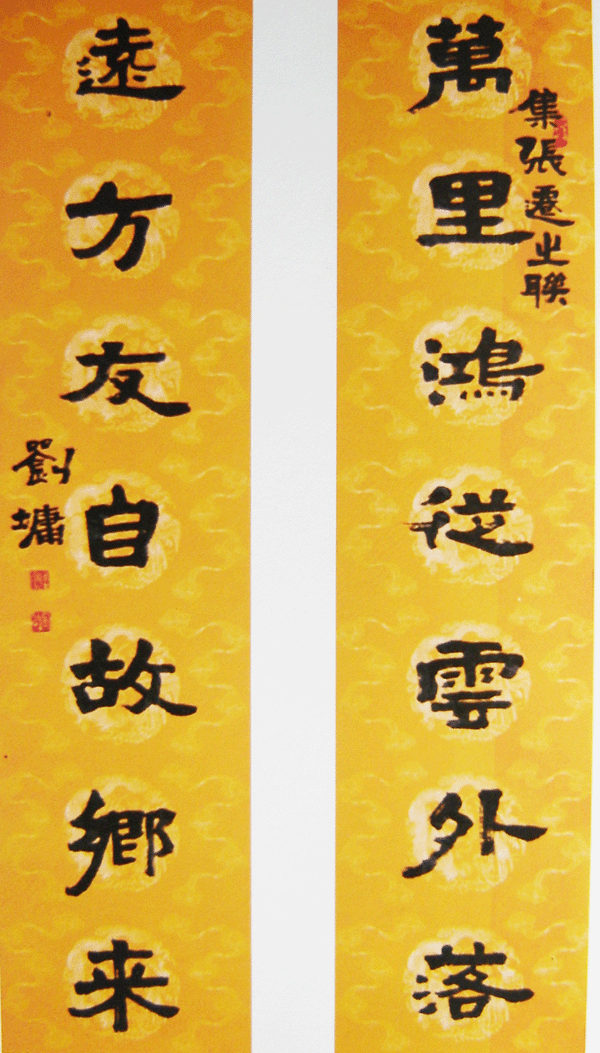 萬里鴻從雲外落
集張遷之聯
遠方友自故鄉来
劉墉